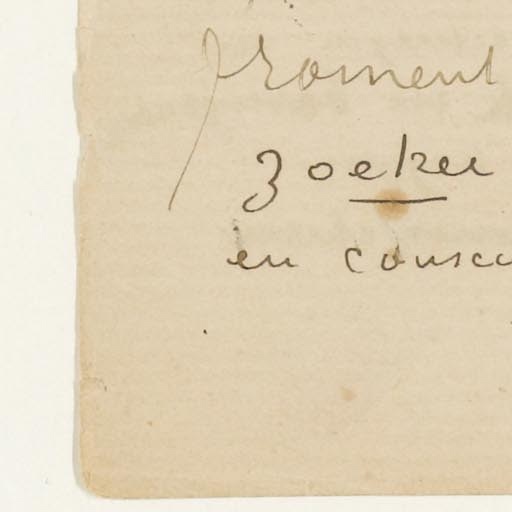 froment
zoeken
en consci